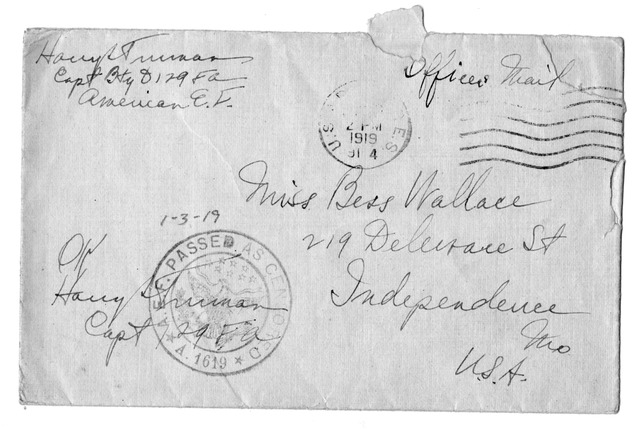 Harry S Truman
Capt Bty D 129 F.A
American E.F.
Officers Mail
U.S. ES
2 PM
1919
Miss Bess Wallace
219 Delaware St
Independence
Mo
U.S.A.
1-3-19
OK
Harry S Truman
Capt 129 F.A
A.E.F. PASSED AS CENSORED
A.1619